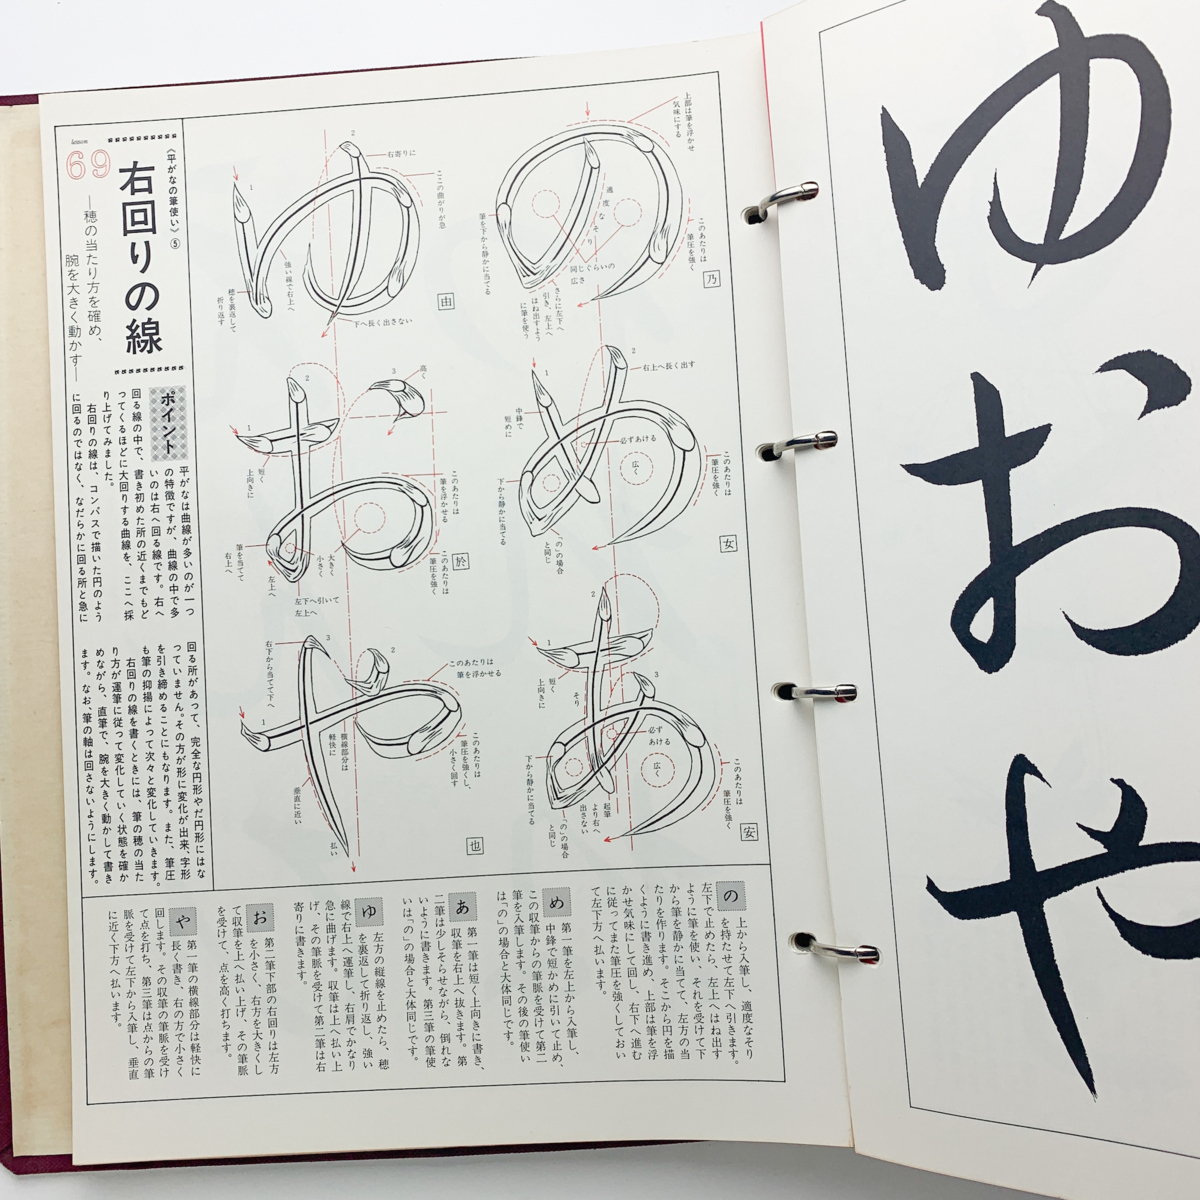 lesson
69
《平がなの筆使い》⑤
右回りの線
―穂の当たり方を確め、
腕を大きく動かす―
ポイント
平がなは曲線が多いのが一つ
の特徴ですが、曲線の中で多
いのは右へ回る線です。右へ
回る線の中で、書き初めた所の近くまでもど
ってくるほどに大回りする曲線を、ここへ採
り上げてみました。
右回りの線は、コンパスで描いた円のよう
に回るのではなく、なだらかに回る所と急に
回る所があって、完全な円形やだ円形にはな
っていません。その方が形に変化が出来、字形
を引き締めることにもなります。また、筆圧
も筆の抑揚によって次々と変化していきます。
右回りの線を書くときには、筆の穂の当た
り方が運筆に従って変化していく状態を確か
めながら、直筆で、腕を大きく動かして書き
ます。なお、筆の軸は回さないようにします。
上部は筆を浮かせ
気味にする
適度なそり
このあたりは
筆圧を強く
筆を下から静かに当てる
同じぐらいの
広さ
さらに左下へ
引き、左上へ
はね出すよう
に筆を使う
乃
1
2
右上へ長く出す
中鋒で
短めに
必ずあける
広く
このあたりは
筆圧を強く
下から静かに当てる
「の」の場合
と同じ
女
1
2
3
短く
上向きに
そり
必ず
あける
広く
このあたりは
筆圧を強く
下から静かに当てる
起筆
より右へ
出さない
「の」の場合
と同じ
安
1
2
右寄りに
ここの曲がりが急
強い線で右上へ
穂を裏返して
折り返す
下へ長く出さない
由
1
2
3
高く
短く
上向きに
このあたりは
筆を浮かせる
筆を当てて
右上へ
小さく
大きく
左上へ
左下へ引いて
左上へ
このあたりは
筆圧を強く
於
1
2
3
右下から当てて下へ
このあたりは
筆を浮かせる
横線部分は
軽快に
このあたりは
筆圧を強くし、
小さく回す
垂直に近い
払い
也
の
上から入筆し、適度なそり
を持たせて左下へ引きます。
左下で止めたら、左上へはね出す
ように筆を使い、それを受けて下
から筆を静かに当てて、左方の当
たりを作ります。そこから円を描
くように書き進め、上部は筆を浮
かせ気味にして回し、右下へ進む
に従ってまた筆圧を強くしておい
て左下方へ払います。
め
第一筆を左上から入筆し、
中鋒で短かめに引いて止め、
この収筆からの筆脈を受けて第二
筆を入筆します。その後の筆使い
は「の」の場合と大体同じです。
あ
第一筆は短く上向きに書き、
収筆を右上へ抜きます。第
二筆は少しそらせながら、倒れな
いように書きます。第三筆の筆使
いは「の」の場合と大体同じです。
ゆ
左方の縦線を止めたら、穂
を裏返して折り返し、強い
線で右上へ運筆し、右肩でかなり
急に曲げます。収筆は上へ払い上
げ、その筆脈を受けて第二筆は右
寄りに書きます。
お
第二筆下部の回りは左方
を小さく、右方を大きくし
て収筆を上へ払い上げ、その筆脈
を受けて、点を高く打ちます。
や
第一筆の横線部分は軽快に
長く書き、右の方で小さく
回します。その収筆の筆脈を受け
て点を打ち、第三筆は点からの筆
脈を受けて左下から入筆し、垂直
に近く下方へ払います。
ゆ
お
や